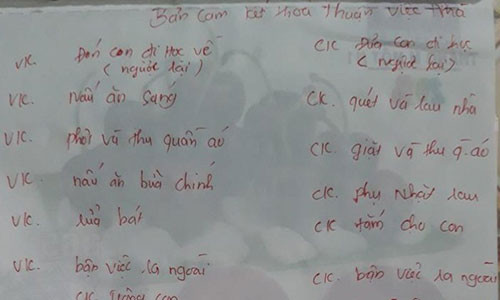 Bản Cam kết Hòa Thuận Việc Nhà
VK. Đón con đi Học về
(ngược lại)
CK Đưa con đi học
(ngược lại)
VK. nấu ăn sáng
CK. quét và lau nhà
VK. phơi và thu quần áo
CK. giặt và thu q.áo
VK. nấu ăn bữa chính
CK. phụ Nhặt rau
VK. rửa bát
CK tắm cho con
VK. bận việc ra ngoài
CK. bận việc ra ngoài
CK trông con